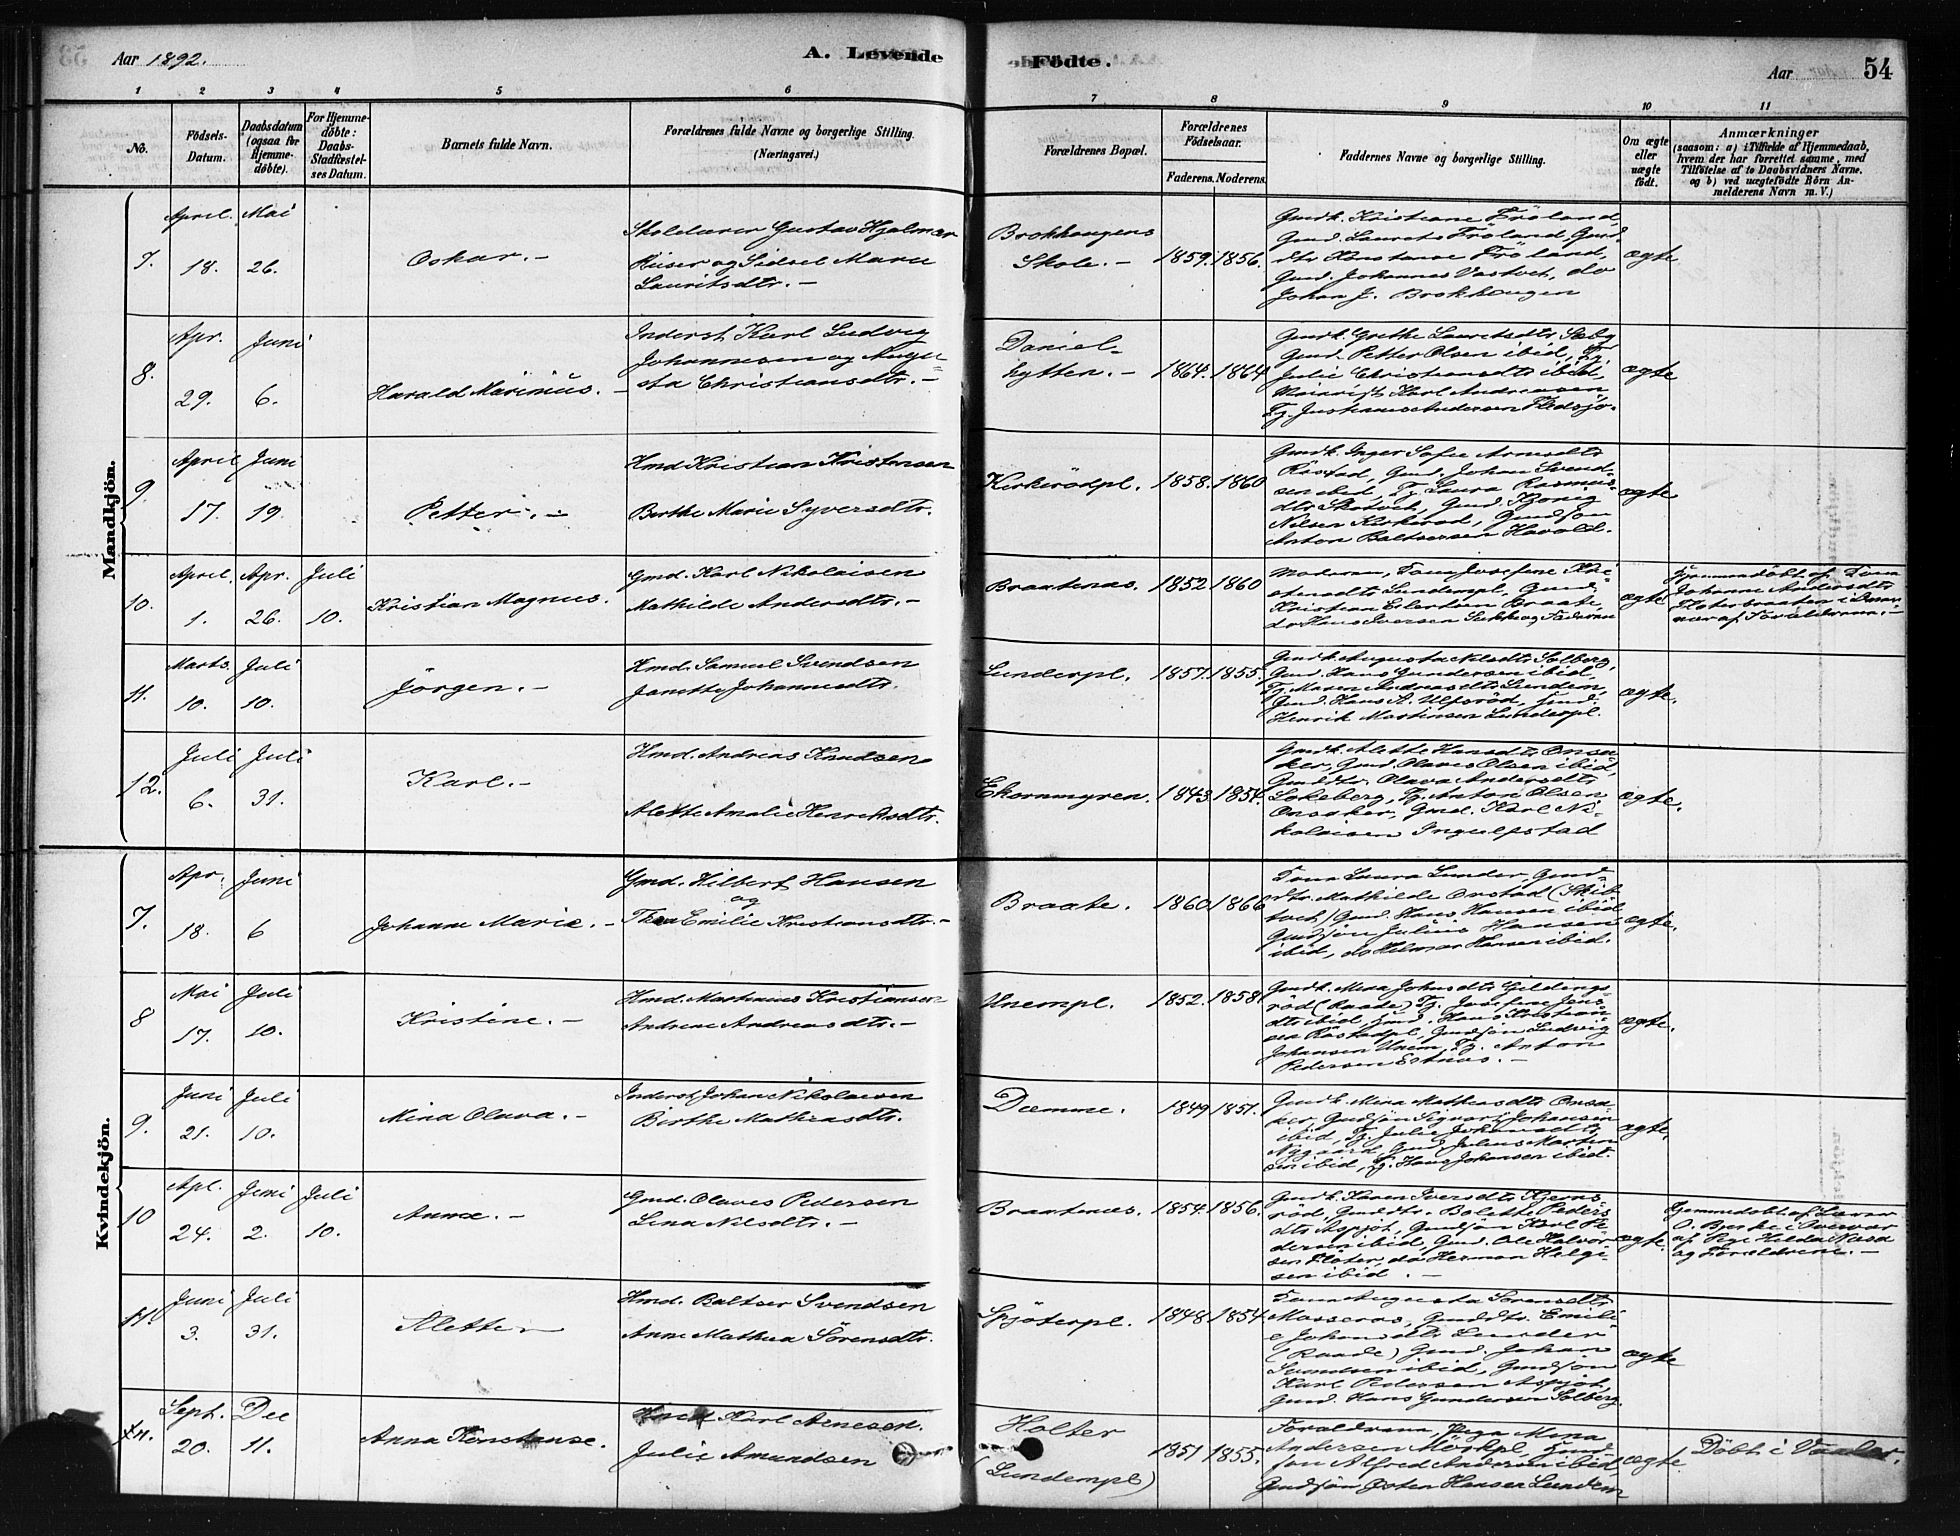 Aar 1892.
A. Levende
Födte.
Aar
54
1 2 3 4 5 6 7 8 9 10 11
No.
Födsels-Datum.
Daabsdatum (ogsaa for Hjemme-döbte).
For Hjemme-döbte: Daabs-Stadfæstel-ses Datum.
Barnets fulde Navn.
Forældrenes fulde Navne og borgerlige Stilling.
(Næringsvei.)
Forældrenes Bopæl.
Forældrenes Födselsaar.
Faderens. Moderens.
Faddernes Navne og borgerlige Stilling.
Om ægte eller uægte födt.
Anmærkninger
(saasom: a) i Tilfælde af Hjemmedaab,
hvem der har forrettet samme, med
Tilföielse af to Daabsvidners Navne.
og b) ved uægtefödte Börn An-
melderens Navn m. V.)
Mandkjön.
7.
April. 18.
Mai 26.
Oskar. -
Skolelærer Gustav Hjalmar
Riiser og Sidsel Marie
Lauritsdtr. -
Brokhaugens
Skole. -
1859. 1856.
Gmdk. Kristiane Fröland
Gmd. Laurets Fröland, Gmd.
dtr Konstanse Fröland,
Gmd. Johannes Vastvet, do
Johan J. Brokhougen
ægte
8.
Apr. 29.
Juni 6.
Harald Marinius. -
Inderst Karl Ludvig
Johannesen og Augu
sta Christiansdtr. -
Daniel-
hytten. -
1864. 1864
Gmdk. Grethe Lauretsdtr Sæby
Gmd. Petter Olsen ibid, Tj.
Julie Christiansdtr ibid,
Karl Andreasen,
Tj. Andersen
ægte
9.
April 17.
Juni 19.
Petter. -
Hmd. Kristian Kristensen
Berthe Marie Syversdtr.
Kirkerödpl.
1858. 1860
Gmdk. Inger Sofie Arnesdtr
Röstad, Gmd. Johan Svend-
sen ibid, Tj. Laura Rasmus-
dtr Skatvet, Gmd.
Nilsen Kirkeröd, Gmdsön
Anton Baltsersen Havold.
ægte
10.
April. 1.
Apr. 26.
Juli 10.
Kristian Magnus.
Gmd. Karl Nikolaisen
Mathilde Andersdtr. -
Braatenæs.
1852 1860
Moderen, Josefine Kri-
stensdtr Lundempl, Gmd.
Kristian Elertsen Braate,
do Hans Iversen og Faderen
ægte
Hjemmedöbt af
Johanne Andersdtr
Flöterbraaten i Dans
nær af Forældrene. -
11.
Marts. 10.
Juli 10.
Jörgen. -
Hmd. Samuel Svendsen
Janette Johannesdtr.
Lunderpl.
1857. 1855.
Gmdk. Augusta Nilsdtr Solberg,
Gmd. Hans Gundersen ibid,
Tj. Maren Andreasdtr Lundem,
Gmd. Hans A. Ulfsröd, Gmd.
Henrik Martinsen Lunderpl.
ægte.
12.
Juli 6.
Juli 31.
Karl. -
Hmd. Andreas Knudsen
Alette Amalie Henriksdtr.
Ekornmyren.
1843. 1854.
Gmdk. Alette Hansdtr Onsa-
ker, Gmd. Olaves Olsen ibid,
Gmddtr. Olava Andersdtr
Lökeberg, Tj. Anton Olsen
Onsaker, Gmd. Karl Ni-
kolaisen Ingulfstad
ægte.
Kvindekjön.
7.
Apr. 18.
Juni 6
Johanne Marie. -
Gmd. Hilbert Hansen
og
Thea Emilie Kristiansdtr. -
Braate.
1860. 1866
Laura Lunder, Gmd-
dtr. Mathilde Onstad (Skib
tvet) Gmd. Hans Hansen ibid
Gmdsön Julius Hansen
ibid, do Hilmar Hansen ibid.
ægte.
8
Mai 17.
Juli 10.
Kristine. -
Hmd. Mathæus Kristiansen
Andrine Andreasdtr. -
Unempl.
1852. 1858.
Gmdk. Mina Johnsdtr Gildings-
röd (Raade) Tj. Josefine Jens
dtr ibid, Gmd. Hans Kristian
sen Röstadpl, Gmdsön Ludvig
Johansen Unem, Tj. Anton
Pedersen . -
ægte.
9.
Juni 21.
Juli 10.
Mina Olava. -
Inderst Johan Nikolaisen
Birthe Mathiasdtr.
Damme.
1849 1851.
Gmdk. Mina Mathiasdtr Onsa-
ker, Gmdsön Sigvart Johansen
ibid, Tj. Julie Johansdtr
Nygaard, Gmd Julius Marten
sen ibid, Tj. Hans Johansen ibid.
ægte.
10
Apl. 24.
Juni 2.
Juli 10.
Anna. -
Gmd. Olaves Pedersen
Lina Nilsdtr. -
Braatenæs.
1854. 1856.
Gmdk. Karen Iversdtr Kjerns
röd, Gmddtr. Bolette Peders
dtr Aspjöt, Gmdsön Karl Pe
dersen ibid, Gmd. Ole Halvor
sen Flöter, do Herman Helgi
sen ibid. -
ægte.
Hjemmedöbt af Laura
O. Bjerke i Overvær
af Pige Hilda
og Forældrene. -
11.
Juni 3.
Juli 31.
Alette -
Hmd. Baltser Svendsen
Anne Mathea Sörensdtr.
Spjöterpl.
1848. 1854.
Augusta Sörensdtr
Masserös, Gmddtr. Emili
e Johansdtr Lunder
(Raade) Gmd. Johan
Svendsen ibid, Gmdsön
Karl Pedersen Aspjöt,
Gmd. Hans Gundersen Solberg
ægte
Sept. 20.
Dec 11.
Anna Konstanse.
Hmd Karl Arnesen.
Julie Amundsen
Holter
(Lundempl)
1851 1855.
Forældrene, Pige Mona
Andersen Moskpl, Gmd
sön Alfred Andersen ibid,
Gmdsön Östen Hansen Lundem
ægte
Döbt i Vaaler.